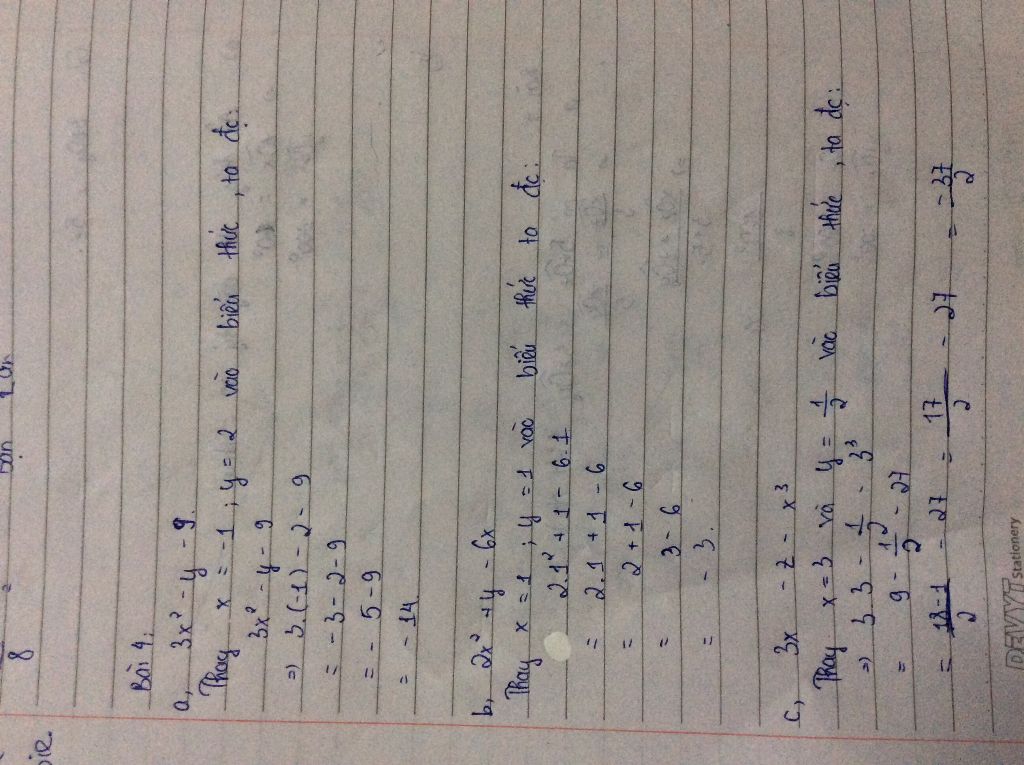 8
Bài 4:
a, 3x² - y - 9.
Thay x = -1 ; y = 2 vào biểu thức, ta đc:
3x² - y - 9
=) 3.(-1) - 2 - 9
= - 3 - 2 - 9
= - 5 - 9
= - 14
b, 2x² + y - 6x
Thay x = 1 ; y = 1 vào biểu thức ta đc:
2.1² + 1 - 6.1
= 2.1 + 1 - 6
= 2 + 1 - 6
= 3 - 6
= - 3.
c, 3x - z - x³
Thay x = 3 và y = 1/2 vào biểu thức, ta đc:
=) 3.3 - 1/2 - 3³
= 9 - 1/2 - 27
= 18-1/2 - 27 = 17/2 - 27 = -37/2
DEVYT Stationery